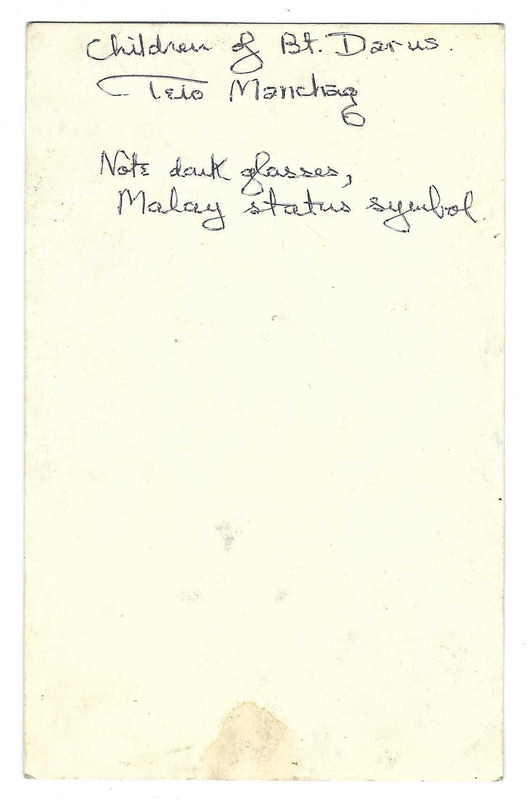 Children of Bt. Darus.
Teio Manchag
Note dark glasses,
Malay status symbol.